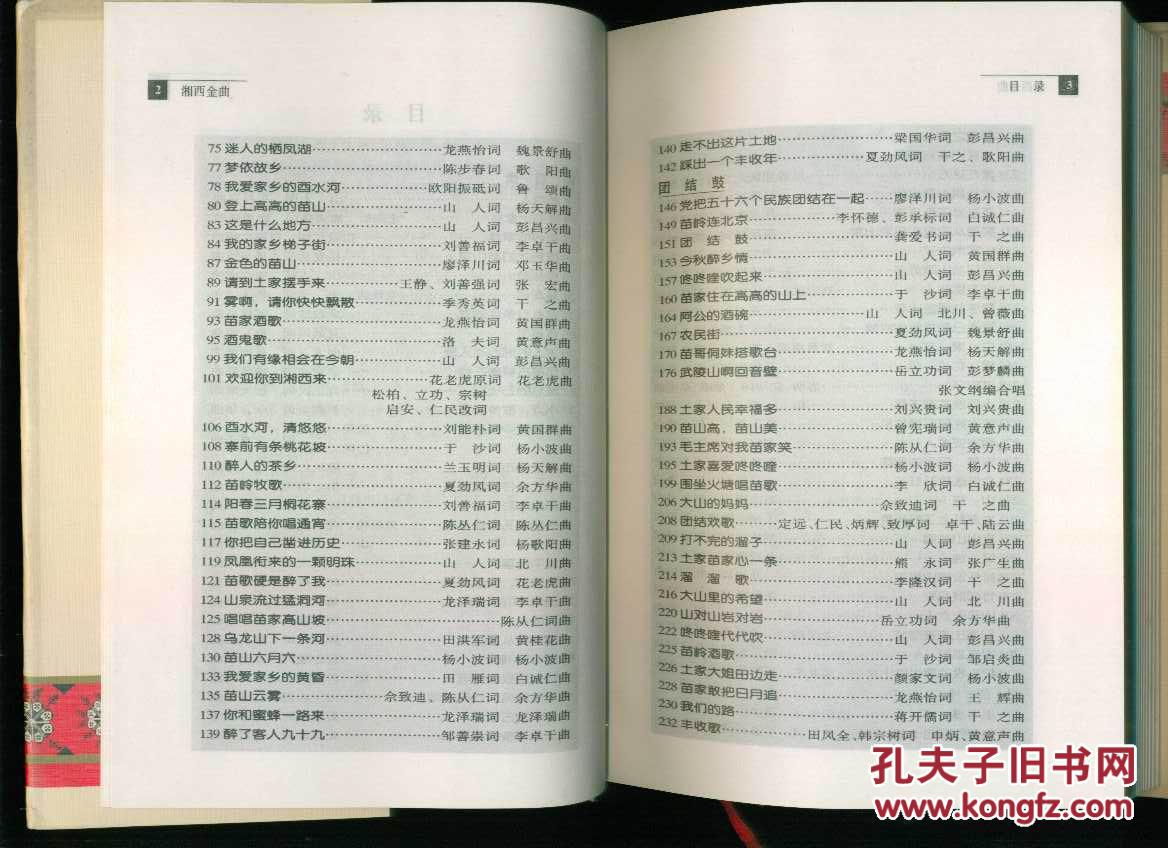 2 湘西金曲
75 迷人的栖凤湖……………………龙燕怡词 魏景舒曲
77 梦依故乡……………………陈步春词 歌 阳曲
78 我爱家乡的酉水河……………………欧阳振砥词 鲁 颂曲
80 登上高高的苗山……………………山 人词 杨天解曲
83 这是什么地方……………………山 人词 彭昌兴曲
84 我的家乡梯子街……………………刘善福词 李卓干曲
87 金色的苗山……………………廖泽川词 邓玉华曲
89 请到土家摆手来……………………王静、刘善强词 张 宏曲
91 雾啊,请你快快飘散……………………季秀英词 干 之曲
93 苗家酒歌……………………龙燕怡词 黄国群曲
95 酒鬼歌……………………洛 夫词 黄意声曲
99 我们有缘相会在今朝……………………山 人词 彭昌兴曲
101 欢迎你到湘西来……………………花老虎原词 花老虎曲
松柏、立功、宗树
启安、仁民改词
106 酉水河,清悠悠……………………刘能朴词 黄国群曲
108 寨前有条桃花坡……………………于 沙词 杨小波曲
110 醉人的茶乡……………………兰玉明词 杨天解曲
112 苗岭牧歌……………………夏劲风词 余方华曲
114 阳春三月桐花寨……………………刘善福词 李卓干曲
115 苗歌陪你唱通宵……………………陈丛仁词 陈丛仁曲
117 你把自己凿进历史……………………张建永词 杨歌阳曲
119 凤凰衔来的一颗明珠……………………山 人词 北 川曲
121 苗歌硬是醉了我……………………夏劲风词 花老虎曲
124 山泉流过猛洞河……………………龙泽瑞词 李卓干曲
125 唱唱苗家高山坡……………………陈从仁词曲
128 乌龙山下一条河……………………田洪军词 黄桂花曲
130 苗山六月六……………………杨小波词 杨小波曲
133 我爱家乡的黄昏……………………田 雁词 白诚仁曲
135 苗山云雾……………………佘致迪、陈从仁词 余方华曲
137 你和蜜蜂一路来……………………龙泽瑞词 龙泽瑞曲
139 醉了客人九十九……………………邹善崇词 李卓干曲
目 录 3
140 走不出这片土地……………………梁国华词 彭昌兴曲
142 踩出一个丰收年……………………夏劲风词 干之、歌阳曲
团 结 鼓
146 党把五十六个民族团结在一起……廖泽川词 杨小波曲
149 苗岭连北京……………………李怀德、彭承标词 白诚仁曲
151 团 结 鼓……………………龚爱书词 干 之曲
153 今秋醉乡情……………………山 人词 黄国群曲
157 咚咚喹吹起来……………………山 人词 彭昌兴曲
160 苗家住在高高的山上……………………于 沙词 李卓干曲
164 阿公的酒碗……………………山 人词 北川、曾薇曲
167 农民街……………………夏劲风词 魏景舒曲
170 苗哥侗妹搭歌台……………………龙燕怡词 杨天解曲
176 武陵山啊回音壁……………………岳立功词 彭梦麟曲
张文纲编合唱
188 土家人民幸福多……………………刘兴贵词 刘兴贵曲
190 苗山高,苗山美……………………曾宪瑞词 黄意声曲
193 毛主席对我苗家笑……………………陈从仁词 余方华曲
195 土家喜爱咚咚喹……………………杨小波词 杨小波曲
199 围坐火塘唱苗歌……………………李 欣词 白诚仁曲
206 大山的妈妈……………………佘致迪词 干 之曲
208 团结欢歌……………………定远、仁民、炳辉、致厚词 卓干、陆云曲
209 打不完的溜子……………………山 人词 彭昌兴曲
213 土家苗家心一条……………………熊 永词 张广生曲
214 溜 溜 歌……………………李隆汉词 干 之曲
216 大山里的希望……………………山 人词 北 川曲
220 山对山岩对岩……………………岳立功词 余方华曲
222 咚咚喹代代吹……………………山 人词 彭昌兴曲
225 苗岭酒歌……………………于 沙词 邹启炎曲
226 土家大姐田边走……………………颜家文词 杨小波曲
228 苗家敢把日月追……………………龙燕怡词 王 辉曲
230 我们的路……………………蒋开儒词 干 之曲
232 丰收歌……………………田凤全、韩宗树词 申炳、黄意声曲
孔夫子旧书网
www.kongfz.com